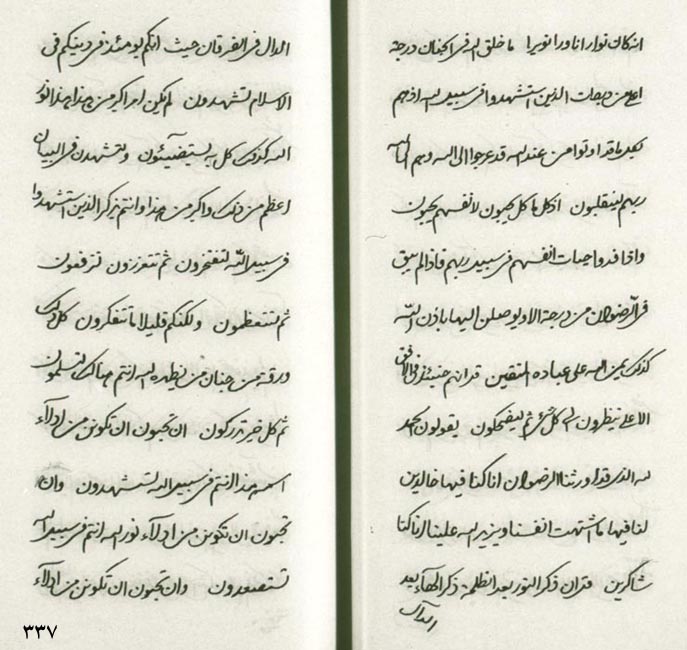 انه كان نوار انا ورا نويرا ما خلق الله فى الجنان درجة
اعلى من درجات الذين استشهدوا فى سبيل الله اذهم
بكل ما قد اوتوا من عند الله قد عرجوا الى الله وهم الى الله
ربهم لينقلبون اذ كل ما كل يحبون لانفسهم يحبون
واذا فدوا حيات انفسهم فى سبيل ربهم فاذا لم يبق
فى الرضوان من درجة الا ويوصلن اليها باذن الله
كذلك يمن الله على عباده المتقين قد انهم حينئذ فى الافق
الاعلى ينظرون الى كل شئ ثم ليضحكون يقولون الحمد
لله الذى قد اورثنا الرضوان انا كنا فيها خالدين
لنا فيها ما اشتهت انفسنا ويزيد الله علينا انا كنا
شاكرين قد ان ذكر النور بعد الظلمة ذكر الهاء بعد
الدال
الدال فى الفرقان حيث انكم يومئذ فى دينكم فى
الاسلام لتشهدون لم يكن امر اكبر من هذا هذا نور
الله كذلك كل به يستضيئون ولتشهدن فى البيان
اعظم من ذلك واكبر من هذا وانتم بذكر الذين استشهدوا
فى سبيل الله لتفتخرون ثم تتعززون ترفعون
ثم تستعظمون ولكنكم قليلا ما تتفكرون كل ذلك
ورقة من جنان من يظهره الله انتم هنالك لتسلمون
ثم كل خير تدركون ان تحبون ان تكونن من ادلاء
اسمه هذا انتم فى سبيل الله تستشهدون وان
تحبون ان تكونن من ادلاء نور الله انتم فى سبيل الله
تستصعدون وان تحبون ان تكونن من ادلاء
٣٣٧